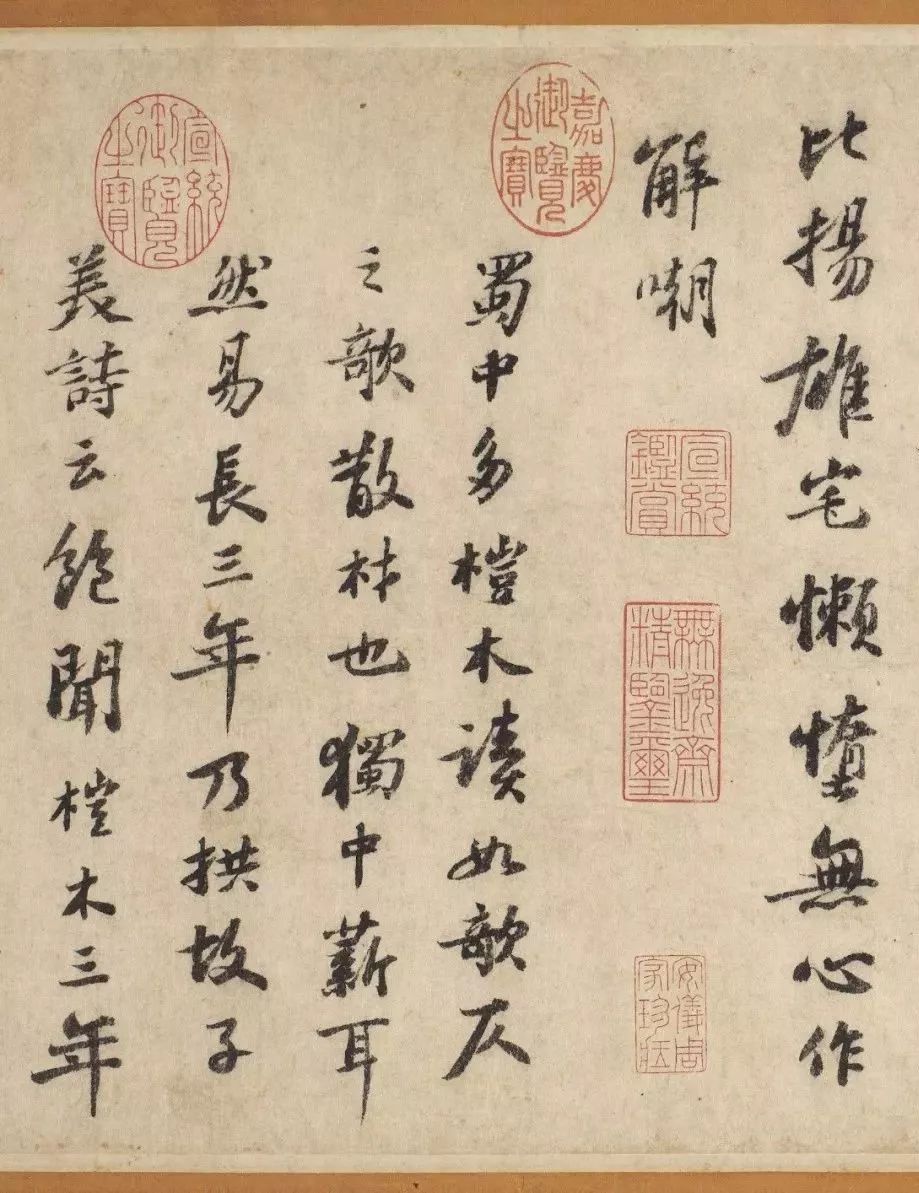 比揚雄宅懶惰無心作
解嘲
宣統鑑賞
無逸齋精鑒璽
安儀周家珍藏
嘉慶御覽之寶
蜀中多榿木讀如欹仄
之欹散材也獨中薪耳
宣統御覽之寶
然易長三年乃拱故子
美詩云飽聞榿木三年